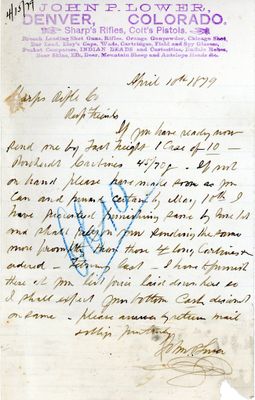 4/15/79
JOHN P. LOWER,
DENVER, COLORADO,
Sharp's Rifles, Colt's Pistols.
Breech Loading Shot Guns, Rifles, Orange Gunpowder, Chicago Shot,
Bar Lead, Eley's Caps, Wads, Cartridges, Field and Spy Glasses,
Pocket Compasses, INDIAN BEADS and Curiosities, Buffalo Robes,
Bear Skins, Elk, Deer, Mountain Sheep and Antelope Heads &c.
April 10th 1879
Sharps Rifle Co
Resp Friends
If you have ready now
send me by fast freight 1 Case of 10 –
Carbines 45/70 – If not
on hand please make soon as you
can and certain by May 10th I
have promised same by
and shall you sending the same
more promptly than those 4 long
ordered – last – I have to furnish
these at your best price laid down here so
I shall expect your bottom Cash discount
on same – please answer by return mail
& oblige yours truly